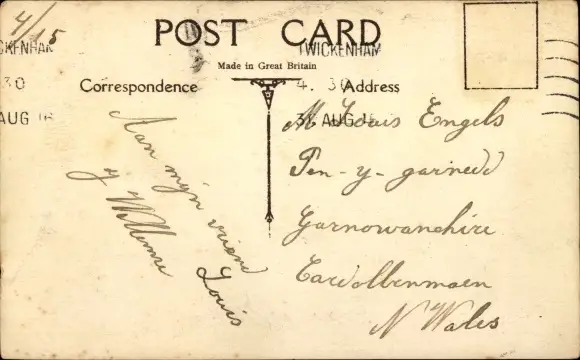 4/15
POST CARD
Made in Great Britain
TWICKENHAM
4. 30
31 AUG 16
WICKENHAM
30
AUG 16
Correspondence
Address
Aan mijn vriend
Louis
y Willems
M Louis Engels
Pen-y-garnedd
Garnowanehire
Cardolbenmaen
N Wales